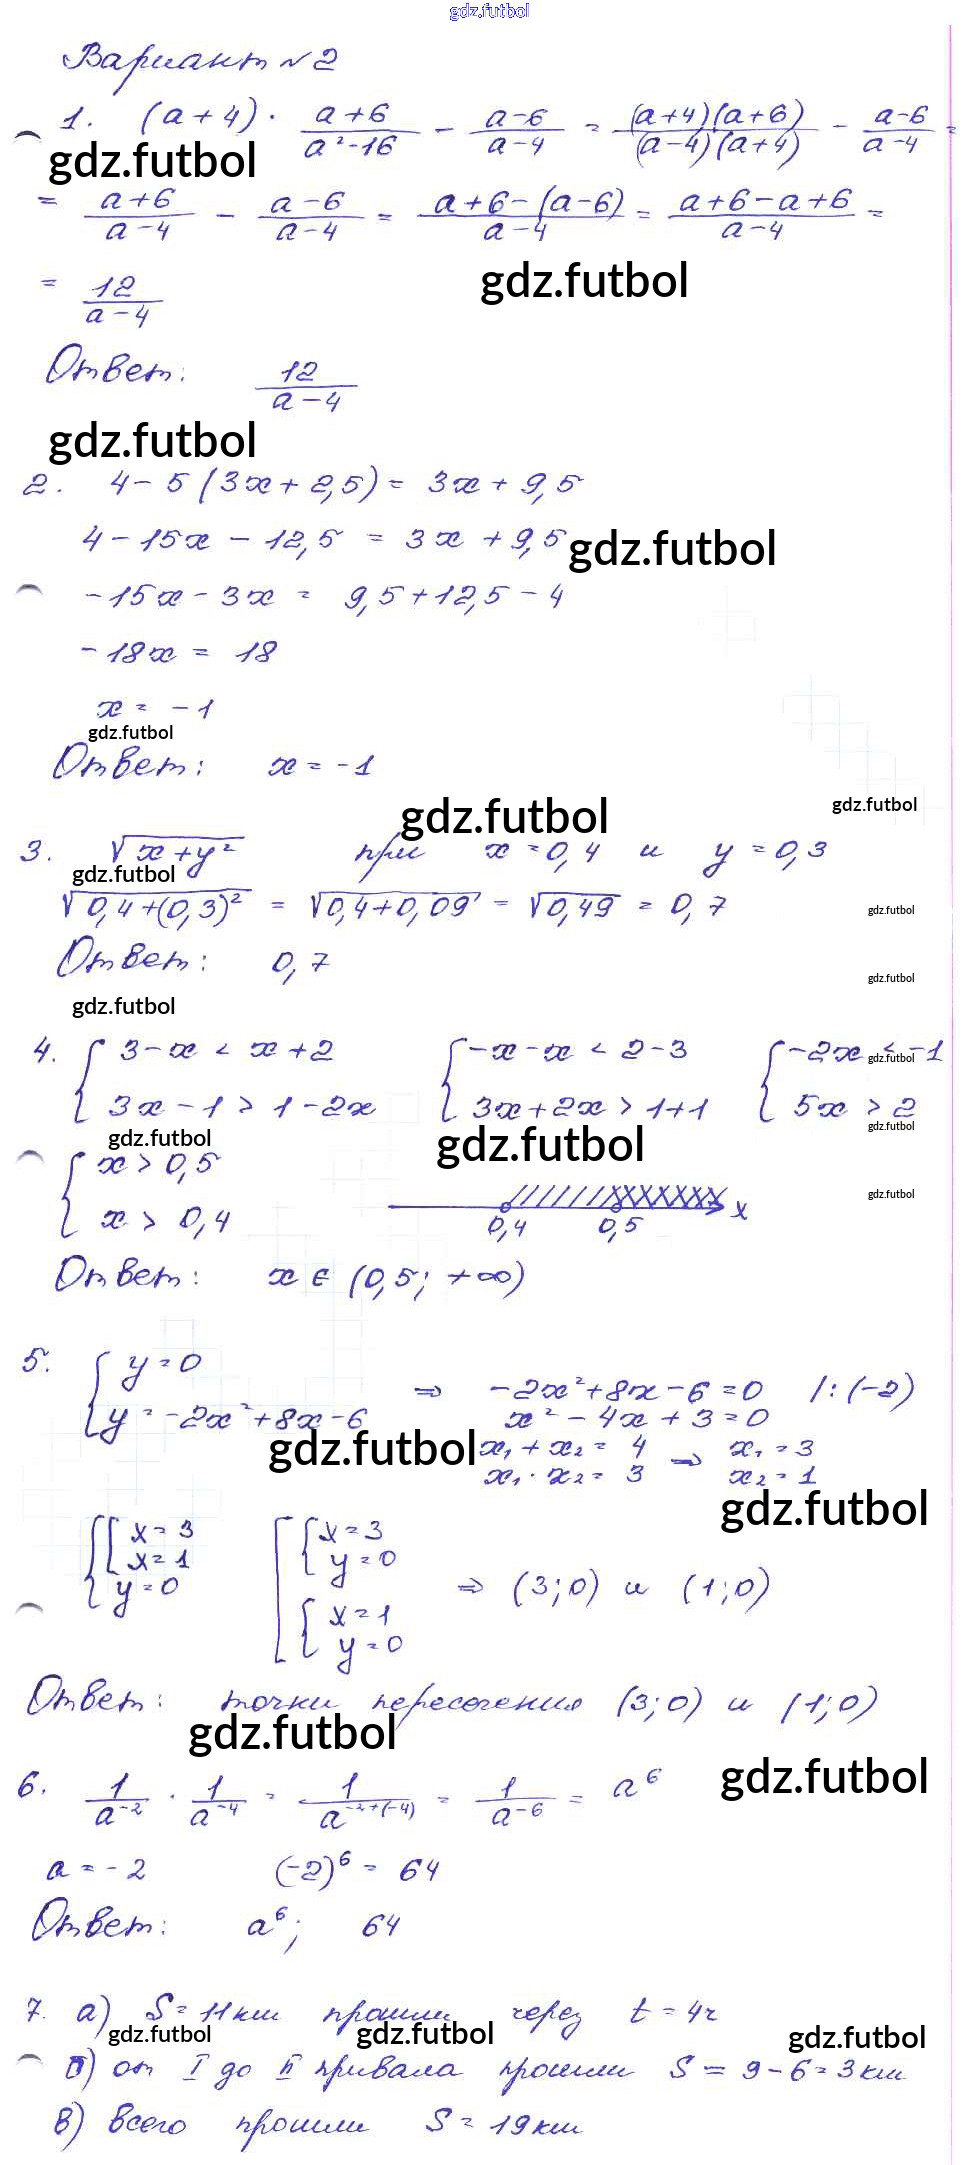 gdz.futbol
Вариант №2
1. (a+4) · \frac{a+6}{a²-16} - \frac{a-6}{a-4} = \frac{(a+4)(a+6)}{(a-4)(a+4)} - \frac{a-6}{a-4} =
gdz.futbol
= \frac{a+6}{a-4} - \frac{a-6}{a-4} = \frac{a+6-(a-6)}{a-4} = \frac{a+6-a+6}{a-4} =
gdz.futbol
= \frac{12}{a-4}
Ответ: \frac{12}{a-4}
gdz.futbol
2. 4-5(3x+2,5) = 3x+9,5
4-15x-12,5 = 3x+9,5
gdz.futbol
-15x-3x = 9,5+12,5-4
-18x = 18
x = -1
gdz.futbol
Ответ: x = -1
gdz.futbol gdz.futbol
3. √(x+y²) при x=0,4 и y=0,3
gdz.futbol
√(0,4+(0,3)²) = √(0,4+0,09) = √0,49 = 0,7
gdz.futbol
Ответ: 0,7
gdz.futbol
gdz.futbol
4. { 3-x < x+2 { -x-x < 2-3 { -2x < -1
gdz.futbol
3x-1 > 1-2x 3x+2x > 1+1 5x > 2
gdz.futbol gdz.futbol gdz.futbol
{ x > 0,5
x > 0,4 0,4 0,5 x
gdz.futbol
Ответ: x ∈ (0,5; +∞)
5. { y=0
y=-2x²+8x-6 ⇒ -2x²+8x-6=0 /:(-2)
x²-4x+3=0
gdz.futbol
x₁+x₂=4 ⇒ x₁=3
x₁·x₂=3 x₂=1
gdz.futbol
{ [ x=3 [ { x=3
x=1 y=0
y=0 ⇒ (3;0) и (1;0)
{ x=1
y=0
Ответ: точки пересечения (3;0) и (1;0)
gdz.futbol
gdz.futbol
6. \frac{1}{a⁻²} · \frac{1}{a⁻⁴} = \frac{1}{a^{-2+(-4)}} = \frac{1}{a⁻⁶} = a⁶
a=-2 (-2)⁶ = 64
Ответ: a⁶; 64
7. а) S=11км прошли через t=4ч
gdz.futbol gdz.futbol gdz.futbol
б) от I до II привала прошли S=9-6=3км
в) всего прошли S=19км